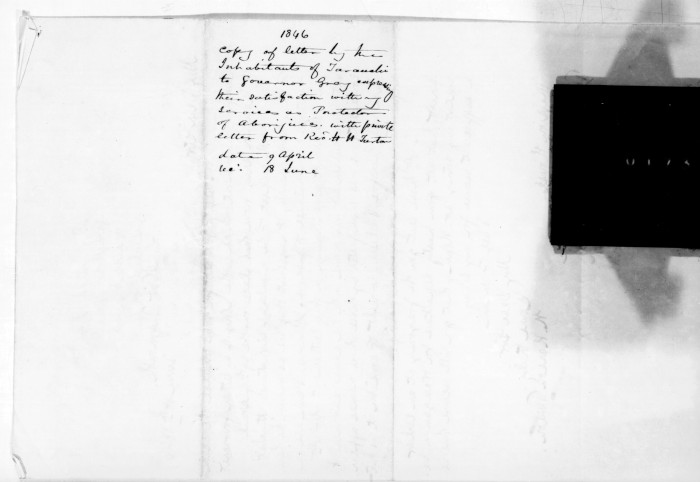 1846
Copy of letter by the
Inhabitants of Taranaki
to Governor Grey expressg
their satisfaction with my
services as Protector
of Aborigines. with private
letter from Revd. H H Turton
date 9 April
rec. 18 June